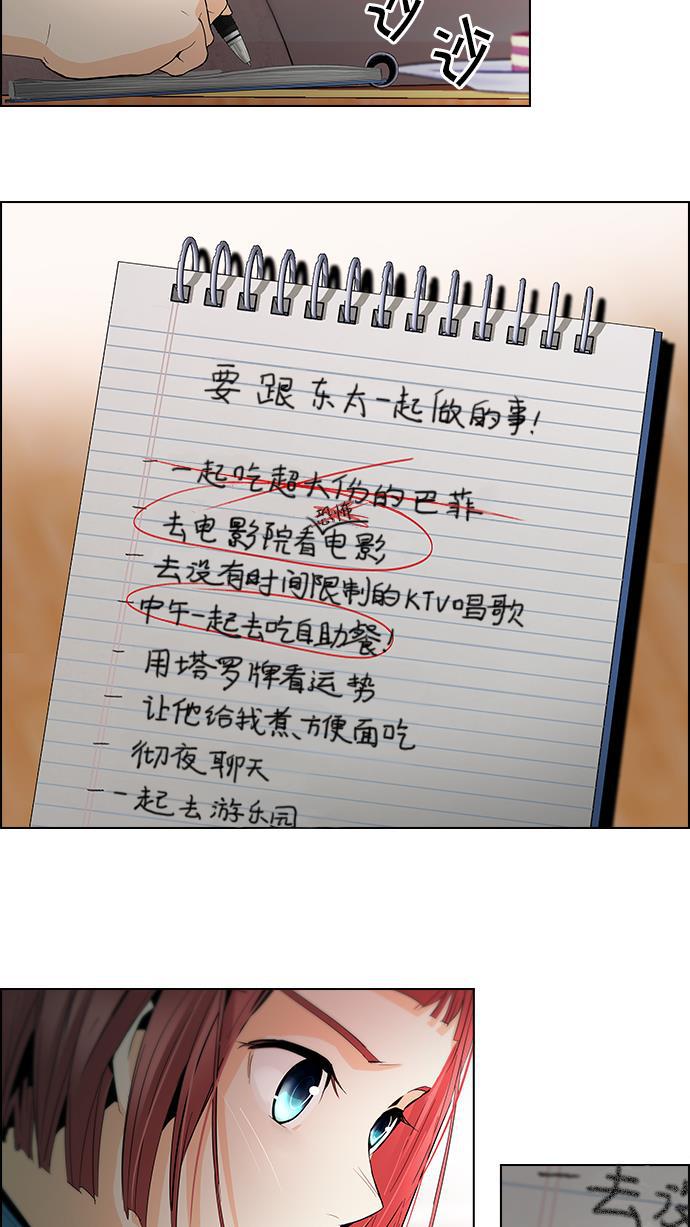 沙
沙
要跟东太一起做的事!
- 一起吃超大份的巴菲
恐怖
- 去电影院看电影
- 去没有时间限制的KTV唱歌
- 中午一起去吃自助餐!
- 用塔罗牌看运势
- 让他给我煮方便面吃
- 彻夜聊天
- 一起去游乐园
- 去没